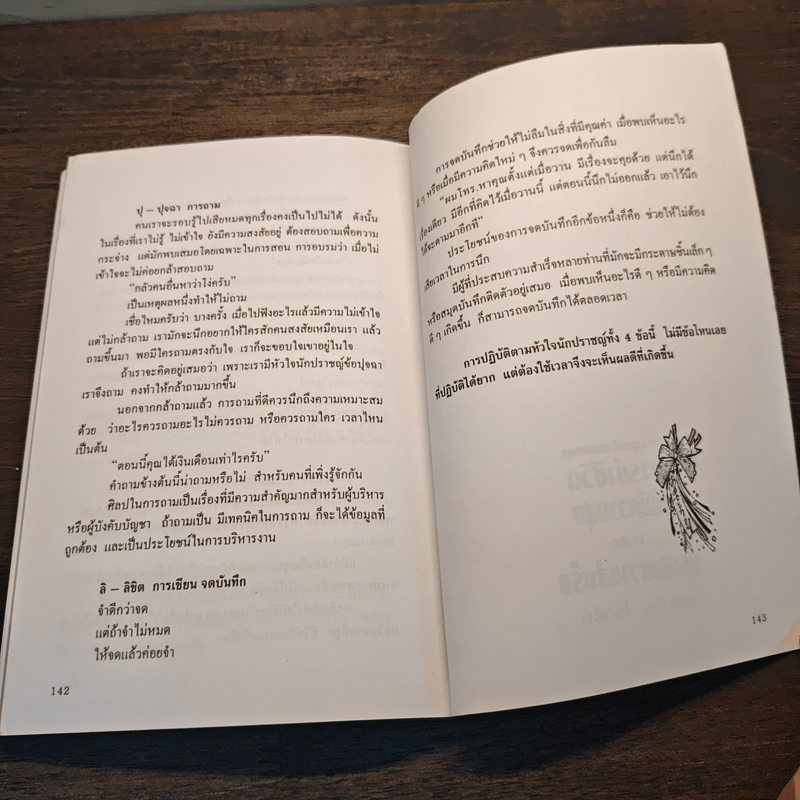 ปุ – ปุจฉา การถาม
คนเราจะรอบรู้ไปเสียหมดทุกเรื่องคงเป็นไปไม่ได้ ดังนั้น
ในเรื่องที่เราไม่รู้ ไม่เข้าใจ ยังมีความสงสัยอยู่ ต้องสอบถามเพื่อความ
กระจ่าง แต่มักพบเสมอโดยเฉพาะในการสอน การอบรมว่า เมื่อไม่
เข้าใจจะไม่ค่อยกล้าสอบถาม
“กลัวคนอื่นหาว่าโง่ครับ”
เป็นเหตุผลหนึ่งทำให้ไม่ถาม
เชื่อไหมครับว่า บางครั้ง เมื่อไปฟังอะไรแล้วมีความไม่เข้าใจ
แต่ไม่กล้าถาม เรามักจะนึกอยากให้ใครสักคนสงสัยเหมือนเรา แล้ว
ถามขึ้นมา พอมีใครถามตรงกับใจ เราก็จะขอบใจเขาอยู่ในใจ
ถ้าเราจะคิดอยู่เสมอว่า เพราะเรามีหัวใจนักปราชญ์ข้อปุจฉา
เราจึงถาม คงทำให้กล้าถามมากขึ้น
นอกจากกล้าถามแล้ว การถามที่ดีควรนึกถึงความเหมาะสม
ด้วย ว่าอะไรควรถามอะไรไม่ควรถาม หรือควรถามใคร เวลาไหน
เป็นต้น
“ตอนนี้คุณได้เงินเดือนเท่าไรครับ”
คำถามข้างต้นนี้น่าถามหรือไม่ สำหรับคนที่เพิ่งรู้จักกัน
ศิลปในการถามเป็นเรื่องที่มีความสำคัญมากสำหรับผู้บริหาร
หรือผู้บังคับบัญชา ถ้าถามเป็น มีเทคนิคในการถาม ก็จะได้ข้อมูลที่
ถูกต้อง และเป็นประโยชน์ในการบริหารงาน
ลิ – ลิขิต การเขียน จดบันทึก
จำดีกว่าจด
แต่ถ้าจำไม่หมด
ให้จดแล้วค่อยจำ
142
การจดบันทึกช่วยให้ไม่ลืมในสิ่งที่มีคุณค่า เมื่อพบเห็นอะไร
ดี ๆ หรือเมื่อมีความคิดใหม่ ๆ จึงควรจดเพื่อกันลืม
“ผมโทร.หาคุณตั้งแต่เมื่อวาน มีเรื่องจะคุยด้วย แต่นึกได้
เรื่องเดียว มีอีกที่คิดไว้เมื่อวานนี้ แต่ตอนนี้นึกไม่ออกแล้ว เอาไว้นึก
ได้จะถามมาอีกที”
ประโยชน์ของการจดบันทึกอีกข้อหนึ่งก็คือ ช่วยให้ไม่ต้อง
เสียเวลาในการนึก
มีผู้ที่ประสบความสำเร็จหลายท่านที่มักจะมีกระดาษชิ้นเล็ก ๆ
หรือสมุดบันทึกติดตัวอยู่เสมอ เมื่อพบเห็นอะไรดี ๆ หรือมีความคิด
ดี ๆ เกิดขึ้น ก็สามารถจดบันทึกได้ตลอดเวลา
การปฏิบัติตามหัวใจนักปราชญ์ทั้ง 4 ข้อนี้ ไม่มีข้อไหนเลย
ที่ปฏิบัติได้ยาก แต่ต้องใช้เวลาจึงจะเห็นผลดีที่เกิดขึ้น
143